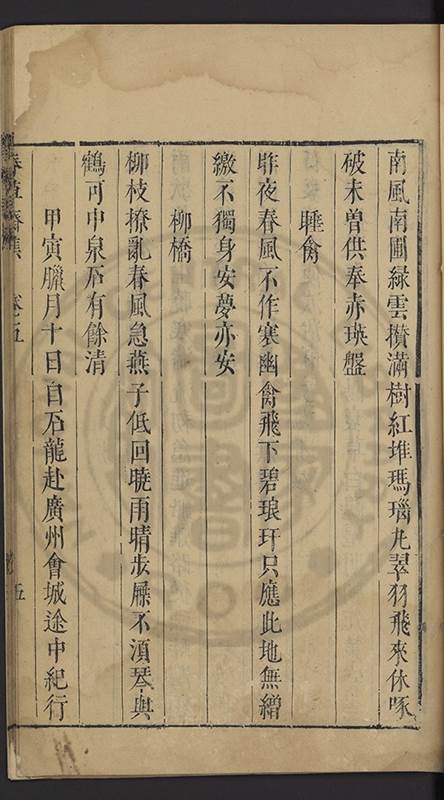 南風南圃緑雲攅滿樹紅堆瑪瑙丸翠羽飛來休啄
破未曽供奉赤瑛盤
睡禽
昨夜春風不作寒幽禽飛下碧琅玕只應此地無繒
繳不獨身安夢亦安
柳橋
柳枝撩亂春風急燕子低回曉雨晴步屧不湏琴與
鶴可中泉石有餘清
甲寅臘月十日自石龍赴廣州會城途中紀行
集 卷五
五